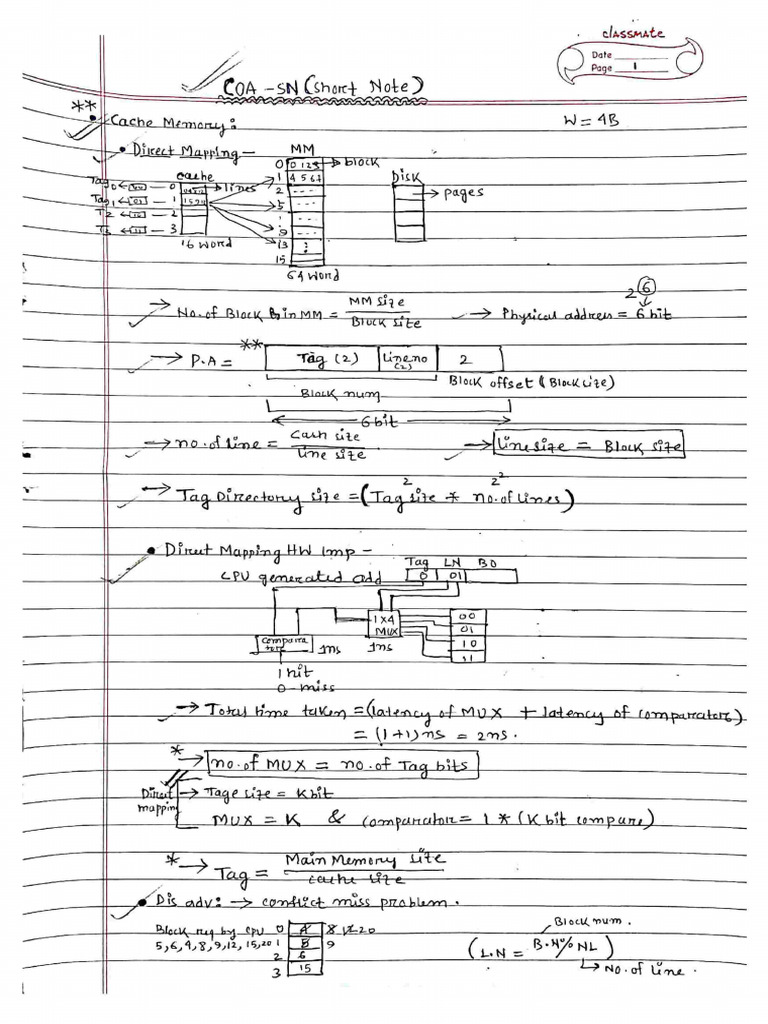 classmate
Date
Page 1
COA -SN (Short Note)
** • Cache Memory:
W = 4B
• Direct Mapping -
MM
0 0 1 2 3 → block
Tag0 ← 00 — 0 cache → lines
1 4 5 6 7
Disk
→ pages
Tag1 ← 01 — 1
2
5
T2 ← 10 — 2
9
T3 ← 11 — 3
13
16 word
15
64 word
→ No. of Block in MM = MM size / Block size
→ Physical address = 6 bit
2^6
→ P.A = ** Tag (2) Line no (2) 2
Block offset (Block size)
Block num
6 bit
→ no. of line = Cash size / Line size
→ Line size = Block size
2 2^2
→ Tag Directory size = (Tag size * no. of lines)
• Direct Mapping HW Imp -
Tag LN BO
CPU generated add 0 01
1x4 MUX
00
01
10
11
comparators 1ns
1ns
1 hit
0 - miss
→ Total time taken = (latency of MUX + latency of comparrators)
= (1+1) ns = 2ns.
* → no. of MUX = no. of Tag bits
Direct mapping → Tage size = K bit
MUX = K & comparator = 1 * (K bit compare)
* → Tag = Main Memory size / cache size
• Dis adv: → conflict miss problem.
Block req by CPU 0 4 8 12 20
5,6,4,8,9,12,15,20 1 5 9
2 6
3 15
Block num.
(L.N = B.N % NL)
→ No. of line.